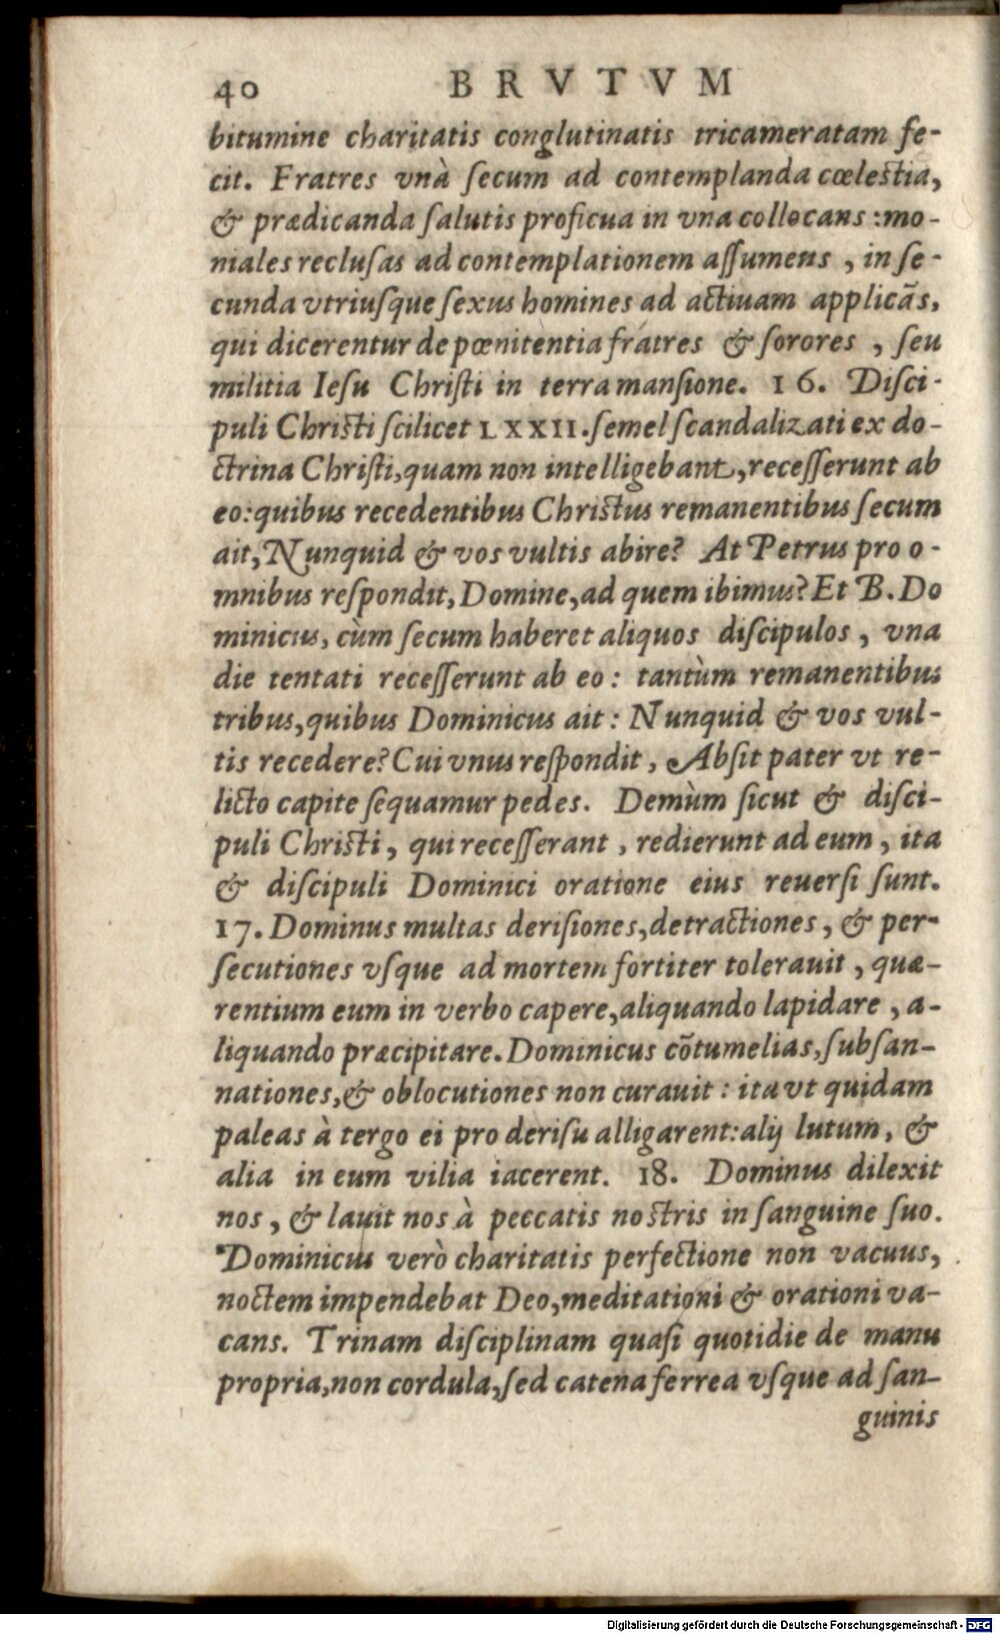 40 BRVTVM
bitumine charitatis conglutinatis tricameratam fe-
cit. Fratres vnà ſecum ad contemplanda cœleſtia,
& prædicanda ſalutis proficua in vna collocans : mo-
niales recluſas ad contemplationem aſſumens , in ſe-
cunda vtriuſque ſexus homines ad actiuam applicās,
qui dicerentur de pœnitentia fratres & ſorores , ſeu
militia Ieſu Chriſti in terra manſione. 16. Diſci-
puli Chriſti ſcilicet LXXII. ſemel ſcandalizati ex do-
ctrina Chriſti, quam non intelligebant, receſſerunt ab
eo: quibus recedentibus Chriſtus remanentibus ſecum
ait, Nunquid & vos vultis abire? At Petrus pro o-
mnibus reſpondit, Domine, ad quem ibimus? Et B. Do
minicus, cùm ſecum haberet aliquos diſcipulos , vna
die tentati receſſerunt ab eo : tantùm remanentibus
tribus, quibus Dominicus ait : Nunquid & vos vul-
tis recedere? Cui vnus reſpondit , Abſit pater vt re-
licto capite ſequamur pedes. Demùm ſicut & diſci-
puli Chriſti , qui receſſerant , redierunt ad eum , ita
& diſcipuli Dominici oratione eius reuerſi ſunt.
17. Dominus multas deriſiones, detractiones , & per-
ſecutiones vſque ad mortem fortiter tolerauit , quæ-
rentium eum in verbo capere, aliquando lapidare , a-
liquando præcipitare. Dominicus cōtumelias, ſubſan-
nationes, & oblocutiones non curauit : ita vt quidam
paleas à tergo ei pro deriſu alligarent: alij lutum , &
alia in eum vilia iacerent. 18. Dominus dilexit
nos , & lauit nos à peccatis noſtris in ſanguine ſuo.
Dominicus verò charitatis perfectione non vacuus,
noctem impendebat Deo, meditationi & orationi va-
cans. Trinam diſciplinam quaſi quotidie de manu
propria, non cordula, ſed catena ferrea vſque ad ſan-
guinis
Digitalisierung gefördert durch die Deutsche Forschungsgemeinschaft - DFG